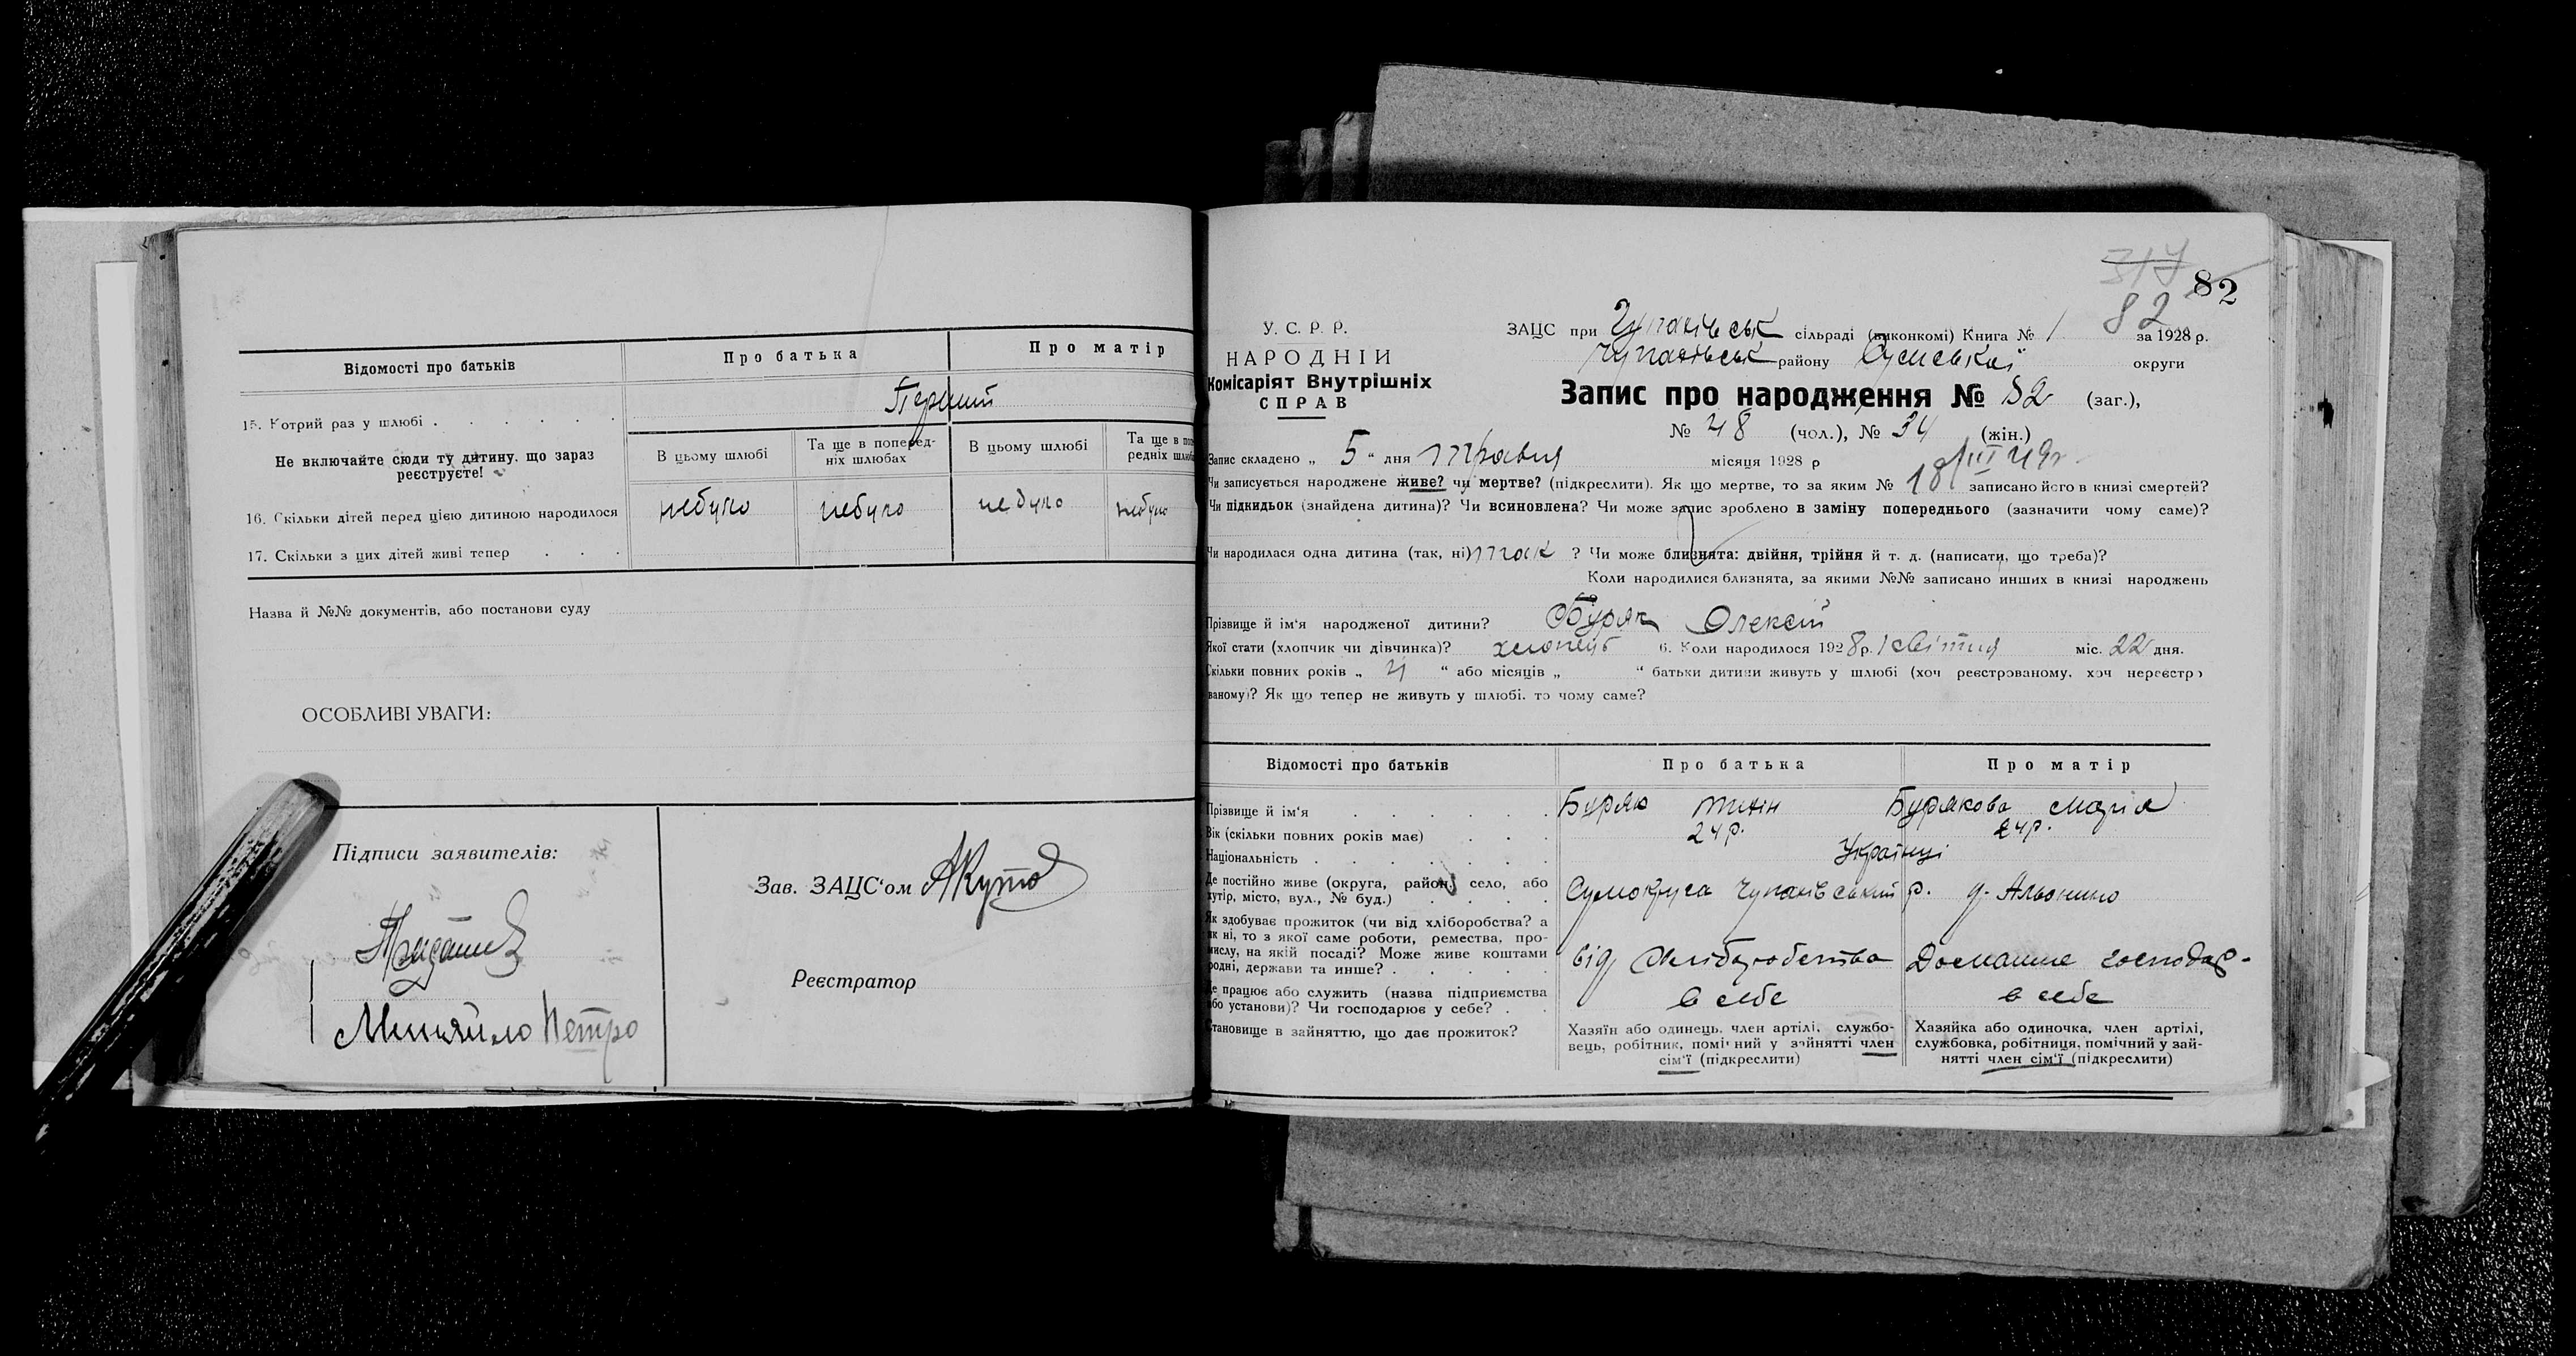 Відомості про батьків
Про батька
Про матір
15. Котрий раз у шлюбі . . . . . .
Перший
Не включайте сюди ту дитину, що зараз
реєструєте!
В цьому шлюбі
Та ще в поперед-
ніх шлюбах
В цьому шлюбі
Та ще в попе
редніх шлюб
16. Скільки дітей перед цією дитиною народилося
небуло
небуло
небуло
небуло
17. Скільки з цих дітей живі тепер . . .
Назва й №№ документів, або постанови суду
ОСОБЛИВІ УВАГИ:
Підписи заявителів:
Миняйло Петро
Зав. ЗАЦС'ом
Реєстратор
317
82
82
У. С. Р. Р.
НАРОДНІЙ
Комісаріят Внутрішніх
СПРАВ
ЗАЦС при Чупахівськ сільраді (виконкомі) Книга № 1 за 1928 р.
Чупахівськ району Сумської округи
Запис про народження № 82 (заг.),
№ 48 (чол.), № 34 (жін.)
Запис складено „ 5 “ дня травня місяця 1928 р
Чи записується народжене живе? чи мертве? (підкреслити). Як що мертве, то за яким № записано його в книзі смертей?
Чи підкидьок (знайдена дитина)? Чи всиновлена? Чи може запис зроблено в заміну попереднього (зазначити чому саме)?
Чи народилася одна дитина (так, ні) так ? Чи може близнята: двійня, трійня й т. д. (написати, що треба)?
Коли народилися близнята, за якими №№ записано инших в книзі народжень
Прізвище й ім'я народженої дитини? Буряк Олексій
Якої стати (хлопчик чи дівчинка)? хлопець 6. Коли народилося 1928р. квітня міс. 22 дня.
Скільки повних років „ “ або місяців „ “ батьки дитини живуть у шлюбі (хоч реєстрованому, хоч нереєстро
ваному)? Як що тепер не живуть у шлюбі, то чому саме?
Відомості про батьків
Про батька
Про матір
Прізвище й ім'я . . . . . .
Буряк
Бурякова Марія
Вік (скільки повних років має) . . .
24р.
24р.
Національність . . . . . . .
Українці
Де постійно живе (округа, район, село, або
хутір, місто, вул., № буд.) . . . .
Сумокруга Чупахівський р. Альонино
Як здобуває прожиток (чи від хліборобства? а
як ні, то з якої саме роботи, ремества, про-
мислу, на якій посаді? Може живе коштами
родні, держави та инше? . . . . .
від хліборобства
Домашнє господар-
Де працює або служить (назва підприємства
або установи)? Чи господарює у себе? . .
в себе
в себе
Становище в зайняттю, що дає прожиток?
Хазяїн або одинець, член артілі, службо-
вець, робітник, помічний у зайнятті член
сім'ї (підкреслити)
Хазяйка або одиночка, член артілі,
службовка, робітниця, помічний у зай-
нятті член сім'ї (підкреслити)